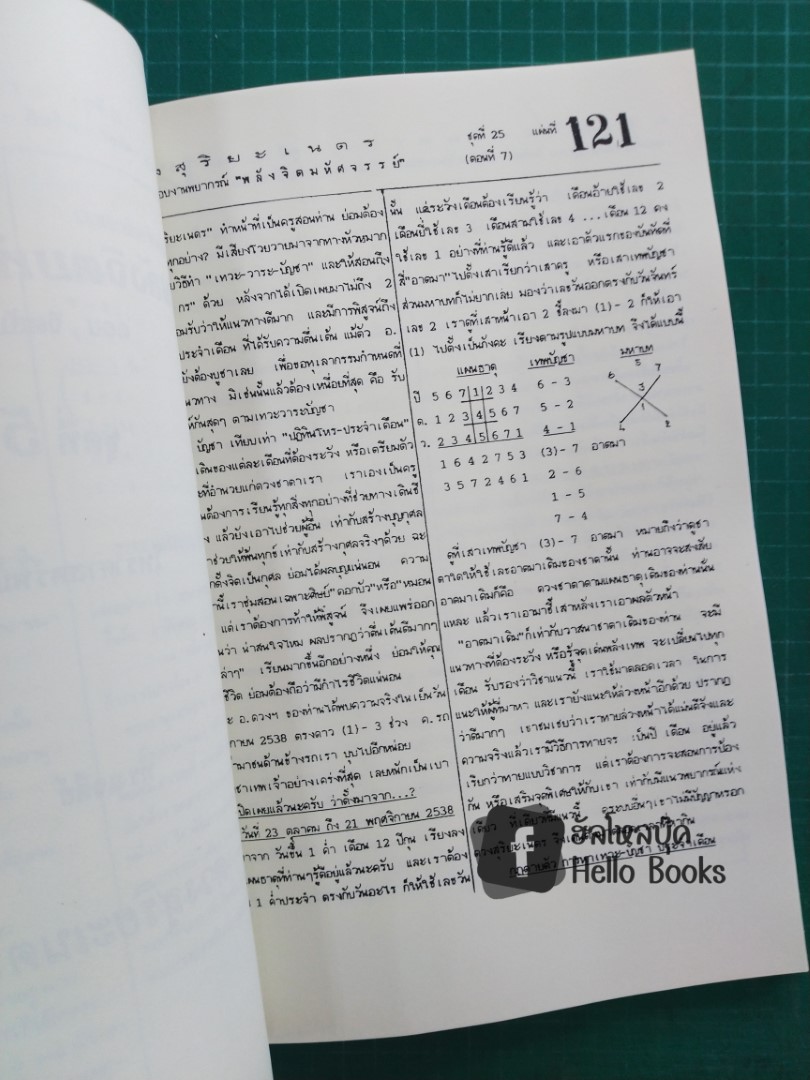 ง สุริยะเนตร
อบงานพยากรณ์ "พลังจิตมหัศจรรย์"
ชุดที่ 25 แผ่นที่ 121
(ตอนที่ 7)
ริยะเนตร" ทำหน้าที่เป็นครูสอนท่าน ย่อมต้อง
ทุกอย่าง? มีเสียงโวยวายมาจากทางหัวหมาก
บวิธีทำ "เทวะ-วาระ-บัญชา" และให้สอนถึง
กร" ด้วย หลังจากได้เปิดเผยมาไม่ถึง 2
อมรับว่าให้แนวทางดีมาก และมีการพิสูจน์ถึง
ประจำเดือน ที่ได้รับความตื่นเต้น แม้ตัว อ.
ยังต้องบูชาเลย เพื่อขอทุเลากรรมกำหนดที่
นวทาง มิเช่นนั้นแล้วต้องเหนื่อยที่สุด คือ รับ
ห์กันสุดๆ ตามเทวะวาระบัญชา
บัญชา เทียบเท่า "ปฏิทินโหร-ประจำเดือน"
เดินของแต่ละเดือนที่ต้องระวัง หรือเตรียมตัว
ะที่อำนวยแก่ดวงชาตาเรา เราเองเป็นครู
นต้องการเรียนรู้ทุกสิ่งทุกอย่างที่ช่วยทางเดินชี
ง แล้วยังเอาไปช่วยผู้อื่น เท่ากับสร้างบุญกุศล
าช่วยให้พ้นทุกข์ เท่ากับสร้างกุศลจริงๆด้วย ฉะ
กตั้งจิตเป็นกุศล ย่อมได้ผลบุญแน่นอน ความ
านี้เราซุ่มสอนเฉพาะศิษย์"ดอกบัว"หรือ"หมอน
แต่เราต้องการท้าให้พิสูจน์ จึงเผยแพร่ออก
นว่า น่าสนใจไหม ผลปรากฏว่าตื่นเต้นดีมากๆ
ล่าๆ" เรียนมากขึ้นอีกอย่างหนึ่ง ย่อมให้คุณ
ชีวิต ย่อมต้องถือว่ามีกำไรชีวิตแน่นอน
ะ อ.ดวงฯ ของท่านได้พบความจริงในเย็นวัน
กายน 2538 ตรงดาว (1)- 3 ช่วง ค.รถ
ามาชนด้านข้างรถเรา บุบไปอีกหน่อย
ชาเทพเจ้าอย่างเคร่งที่สุด เลยหนักเป็นเบา
ปิดเผยแล้วนะครับ ว่าตั้งมาจาก...?
วันที่ 23 ตุลาคม ถึง 21 พฤศจิกายน 2538
าจาก วันขึ้น 1 ค่ำ เดือน 12 ปีกุน เรียงลง
ผนธาตุที่ท่านๆรู้ดีอยู่แล้วนะครับ และเราต้อง
น 1 ค่ำประจำ ตรงกับวันอะไร ก็ให้ใช้เลขวัน
นั้น แต่ระวังเดือนต้องเรียนรู้ว่า เดือนอ้ายใช้เลข 2
เดือนยี่ใช้เลข 3 เดือนสามใช้เลข 4 ...เดือน 12 คง
ใช้เลข 1 อย่างที่ท่านรู้ดีแล้ว และเอาตัวแรกของบันทัดที่
สี่"อาตมา"ไปตั้งเสาเรียกว่าเสาครู หรือเสาเทพบัญชา
ส่วนมหาบทก็ไม่ยากเลย มองว่าเลขวันออกตรงกับวันจันทร์
เลข 2 เราดูที่เสาหน้าเอา 2 ชี้ลงมา (1)- 2 ก็ให้เอา
(1) ไปตั้งเป็นภังคะ เรียงตามรูปแบบมหาบท จึงได้แบบนี้
แผนธาตุ เทพบัญชา มหาบท
ปี 5 6 7 1 2 3 4 6 - 3
ด. 1 2 3 4 5 6 7 5 - 2
ว. 2 3 4 5 6 7 1 4 - 1
1 6 4 2 7 5 3 (3)- 7 อาตมา
3 5 7 2 4 6 1 2 - 6
1 - 5
7 - 4
5
6 7
3
1
4 2
ดูที่เสาเทพบัญชา (3)- 7 อาตมา หมายถึงว่าดูชา
ตาใดให้ใช้เลขอาตมาเดิมของชาตานั้น ท่านอาจจะสงสัย
อาตมาเดิมก็คือ ดวงชาตาตามแผนธาตุเดิมของท่านนั้น
แหละ แล้วเราเอามาชี้เสาหลังเราเอาผลตัวหน้า
"อาตมาเดิม"ก็เท่ากับวาสนาชาตาเดิมของท่าน จะมี
แนวทางที่ต้องระวัง หรือรู้จุดเด่นพลังเทพ จะเปลี่ยนไปทุก
เดือน รับรองว่าวิชาแนวนี้ เราใช้มาตลอดเวลา ในการ
แนะให้ผู้ที่มาหา และเรายังแนะให้ล่วงหน้าอีกด้วย ปรากฏ
ว่าดีมากๆ เขาชมเชยว่าเราทายล่วงหน้าได้แม่นดีจังและ
ความจริงแล้วเรามีวิธีการทายจร เป็นปี เดือน อยู่แล้ว
เรียกว่าทายแบบวิชาการ แต่เราต้องการจะสอนการป้อง
กัน หรือเสริมจุดพิเศษให้กับเขา เท่ากับมีแนวพยากรณ์แห่ง
เดียว ที่เดียวที่มีแนวนี้ ครูระบบอื่นๆเขาไม่มีปัญญาหรอก
ดวงสุริยะเนตร จึง
ประจำเดือน
ฮัลโหลบุ๊ค
Hello Books